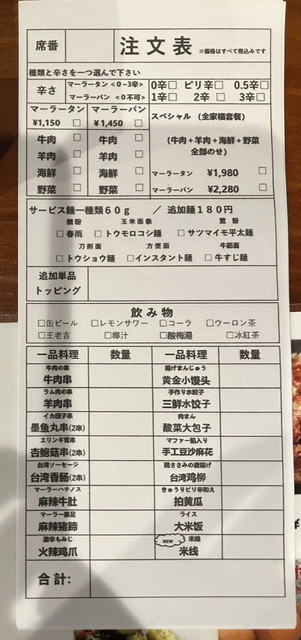 席番
注文表 ※価格はすべて税込みです
種類と辛さを一つ選んで下さい
辛さ
マーラータン <0~3辛>
マーラーパン <0不可>
0辛□ ピリ辛□ 0.5辛□
1辛□ 2辛 □ 3辛□
マーラータン マーラーパン
¥1,150 □ ¥1,450 □
牛肉 □ 牛肉 □
羊肉 □ 羊肉 □
海鮮 □ 海鮮 □
野菜 □ 野菜 □
スペシャル (全家福套餐)
(牛肉+羊肉+海鮮+野菜
全部のせ)
マーラータン ¥1,980 □
マーラーパン ¥2,280 □
サービス麺一種類60g / 追加麺180円
玉米面条
□春雨 □トウモロコシ麺 □サツマイモ平太麺
刀削面 方便面 牛筋面
□トウショウ麺 □インスタント麺 □牛すじ麺
追加単品
トッピング
飲み物
□缶ビール □レモンサワー □コーラ □ウーロン茶
□王老吉 □椰汁 □酸梅湯 □冰紅茶
一品料理 数量 一品料理 数量
牛肉の串
牛肉串
ラム肉の串
羊肉串
イカ団子串
墨鱼丸串(2串)
エリンギ茸串
杏鲍菇串(2串)
台湾ソーセージ
台湾香肠(2串)
マーラーハチノス
麻辣牛肚
マーラー豚足
麻辣猪蹄
激辛もみじ
火辣鸡爪
揚げまんじゅう
黄金小馒头
手作り水餃子
三鮮水饺子
肉まん
酸菜大包子
マファー餡入り
手工豆沙麻花
鶏ささみの唐揚げ
台湾鸡柳
きゅうりピリ辛和え
拍黄瓜
ライス
大米饭
NEW 米線
米线
合計: